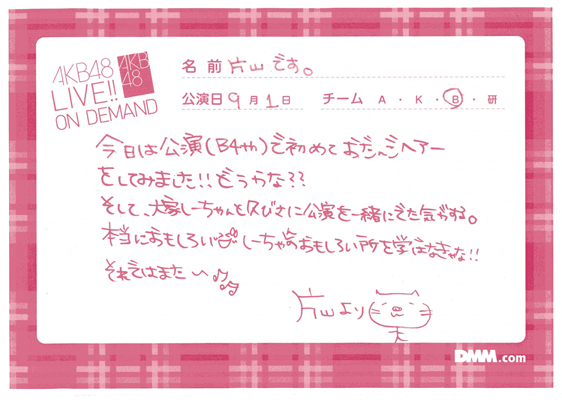 AKB48
LIVE!!
ON DEMAND
AKB
48
名前 片山です。
公演日 9月1日 チーム A・K・B・研
今日は公演(B4th)で初めておだんごヘアー
をしてみました!!どうかな??
そして、大家しーちゃんと久びさに公演を一緒にでた気がする。
本当におもしろい しーちゃんのおもしろい所を学ばなきゃな!!
それではまた〜♪♪
片山より
DMM.com